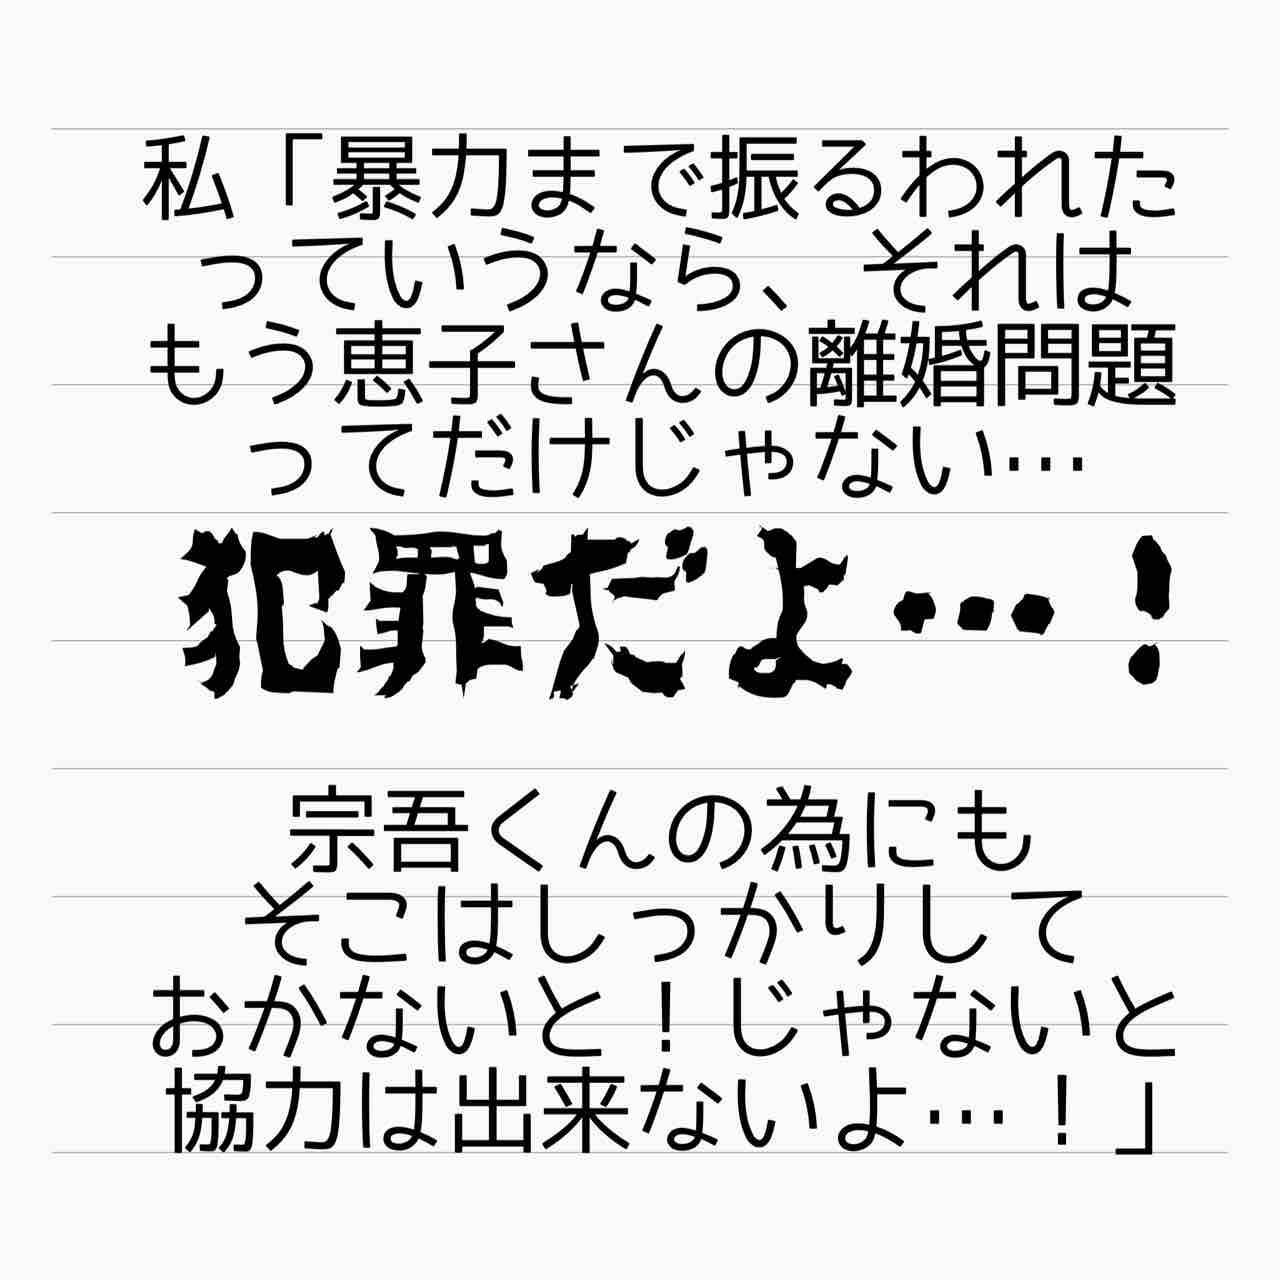 私「暴力まで振るわれた
っていうなら、それは
もう恵子さんの離婚問題
ってだけじゃない…
犯罪だよ…！
宗吾くんの為にも
そこはしっかりして
おかないと！じゃないと
協力は出来ないよ…！」